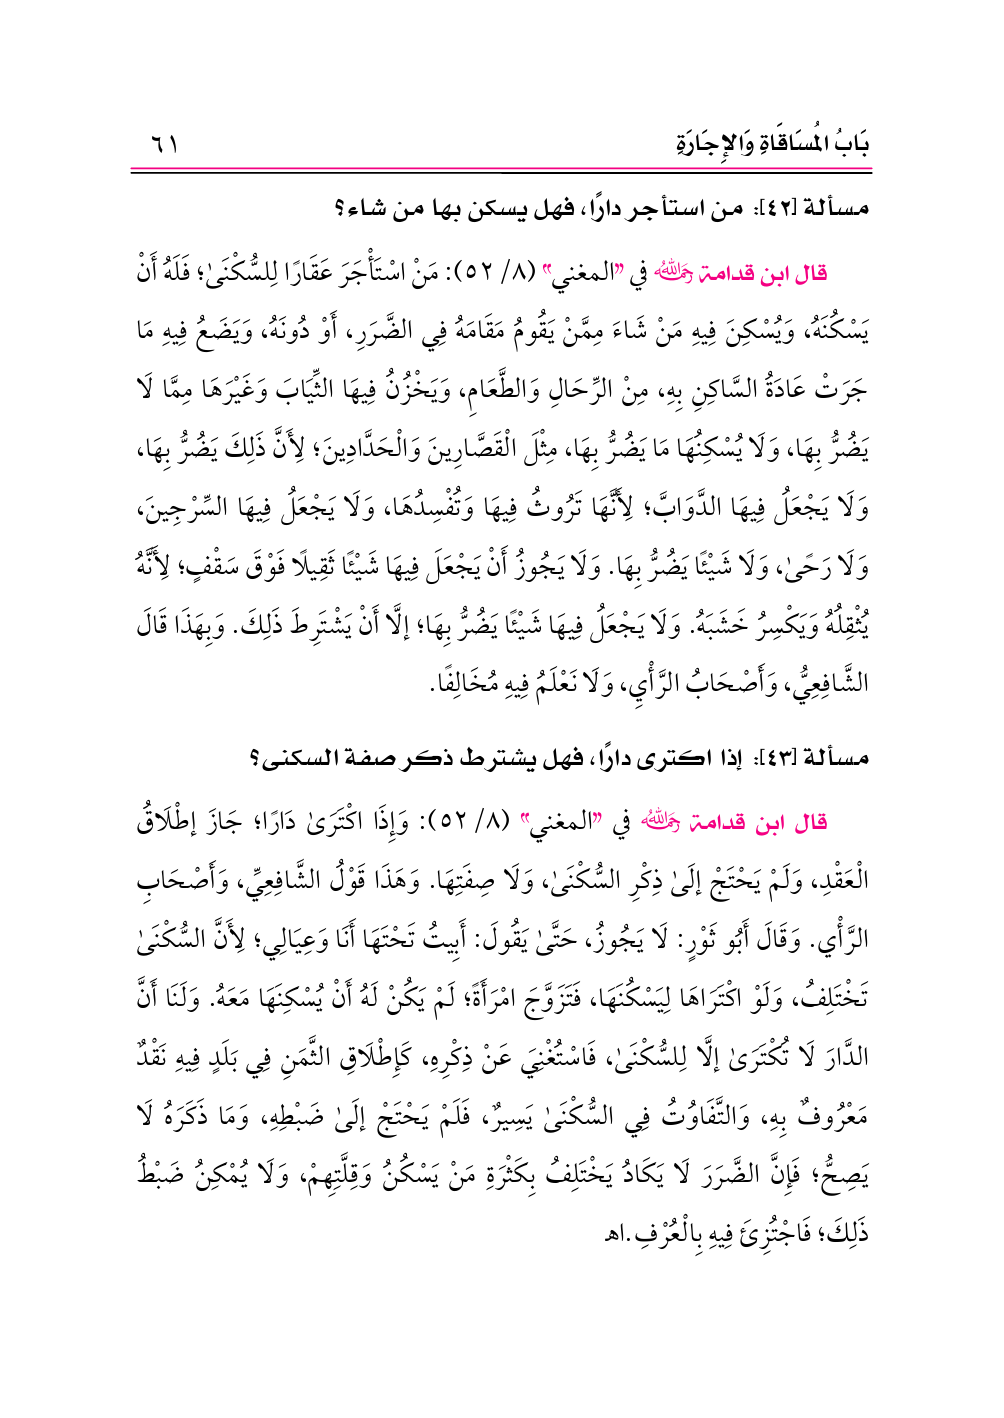 بَابُ المُسَاقَاةِ وَالإِجَارَةِ ٦١
مسألة [٤٢]: من استأجر دارًا، فهل يسكن بها من شاء؟
قال ابن قدامة رَحِمَهُ اللهُ في "المغني" (٨/ ٥٢): مَنْ اسْتَأْجَرَ عَقَارًا لِلسُّكْنَىٰ؛ فَلَهُ أَنْ
يَسْكُنَهُ، وَيُسْكِنَ فِيهِ مَنْ شَاءَ مِمَّنْ يَقُومُ مَقَامَهُ فِي الضَّرَرِ، أَوْ دُونَهُ، وَيَضَعُ فِيهِ مَا
جَرَتْ عَادَةُ السَّاكِنِ بِهِ، مِنْ الرِّحَالِ وَالطَّعَامِ، وَيَخْزُنُ فِيهَا الثِّيَابَ وَغَيْرَهَا مِمَّا لَا
يَضُرُّ بِهَا، وَلَا يُسْكِنُهَا مَا يَضُرُّ بِهَا، مِثْلَ الْقَصَّارِينَ وَالْحَدَّادِينَ؛ لِأَنَّ ذَلِكَ يَضُرُّ بِهَا،
وَلَا يَجْعَلُ فِيهَا الدَّوَابَّ؛ لِأَنَّهَا تَرُوثُ فِيهَا وَتُفْسِدُهَا، وَلَا يَجْعَلُ فِيهَا السِّرْجِينَ،
وَلَا رَحًىٰ، وَلَا شَيْئًا يَضُرُّ بِهَا. وَلَا يَجُوزُ أَنْ يَجْعَلَ فِيهَا شَيْئًا ثَقِيلًا فَوْقَ سَقْفٍ؛ لِأَنَّهُ
يُثْقِلُهُ وَيَكْسِرُ خَشَبَهُ. وَلَا يَجْعَلُ فِيهَا شَيْئًا يَضُرُّ بِهَا؛ إلَّا أَنْ يَشْتَرِطَ ذَلِكَ. وَبِهَذَا قَالَ
الشَّافِعِيُّ، وَأَصْحَابُ الرَّأْيِ، وَلَا نَعْلَمُ فِيهِ مُخَالِفًا.
مسألة [٤٣]: إذا اكترى دارًا، فهل يشترط ذكر صفة السكنى؟
قال ابن قدامة رَحِمَهُ اللهُ في "المغني" (٨/ ٥٢): وَإِذَا اكْتَرَىٰ دَارًا؛ جَازَ إطْلَاقُ
الْعَقْدِ، وَلَمْ يَحْتَجْ إلَىٰ ذِكْرِ السُّكْنَىٰ، وَلَا صِفَتِهَا. وَهَذَا قَوْلُ الشَّافِعِيِّ، وَأَصْحَابِ
الرَّأْيِ. وَقَالَ أَبُو ثَوْرٍ: لَا يَجُوزُ، حَتَّىٰ يَقُولَ: أَبِيتُ تَحْتَهَا أَنَا وَعِيَالِي؛ لِأَنَّ السُّكْنَىٰ
تَخْتَلِفُ، وَلَوْ اكْتَرَاهَا لِيَسْكُنَهَا، فَتَزَوَّجَ امْرَأَةً؛ لَمْ يَكُنْ لَهُ أَنْ يُسْكِنَهَا مَعَهُ. وَلَنَا أَنَّ
الدَّارَ لَا تُكْتَرَىٰ إلَّا لِلسُّكْنَىٰ، فَاسْتُغْنِيَ عَنْ ذِكْرِهِ، كَإِطْلَاقِ الثَّمَنِ فِي بَلَدٍ فِيهِ نَقْدٌ
مَعْرُوفٌ بِهِ، وَالتَّفَاوُتُ فِي السُّكْنَىٰ يَسِيرٌ، فَلَمْ يَحْتَجْ إلَىٰ ضَبْطِهِ، وَمَا ذَكَرَهُ لَا
يَصِحُّ؛ فَإِنَّ الضَّرَرَ لَا يَكَادُ يَخْتَلِفُ بِكَثْرَةِ مَنْ يَسْكُنُ وَقِلَّتِهِمْ، وَلَا يُمْكِنُ ضَبْطُ
ذَلِكَ؛ فَاجْتُزِئَ فِيهِ بِالْعُرْفِ.اهـ